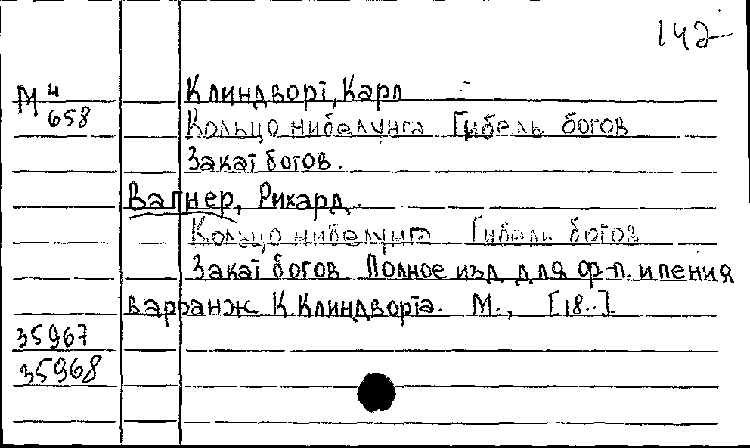 142
М 4 Клиндворт, Карл
658 Кольцо нибелунга Гибель богов
Закат богов.
Вагнер, Рихард.
Кольцо нибелунга Гибель богов
Закат богов. Полное изд. для ф-п. и пения
в арранж. К. Клиндворта. М., [18..].
35967
35968